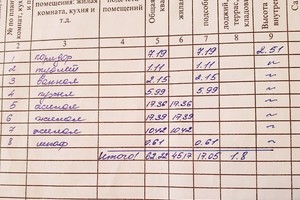 № по план
комнат, кухня и
помещения: жилая
комната, кухня и
т.д.
помещений
Общая
жилая
подсоб
лоджий,
террас,
кладовы
Высота
внутрен
1 2 3 4 5 6 7 8 9
1 коридор 7.19 7.19 2.51
2 туалет 1.11 1.11 ~
3 ванная 2.15 2.15 ~
4 кухня 5.99 5.99 ~
5 жилая 17.36 17.36 ~
6 жилая 17.39 17.39 ~
7 жилая 10.42 10.42 ~
8 шкаф 0.61 0.61 ~
Итого! 62.22 45.17 17.05 1.8